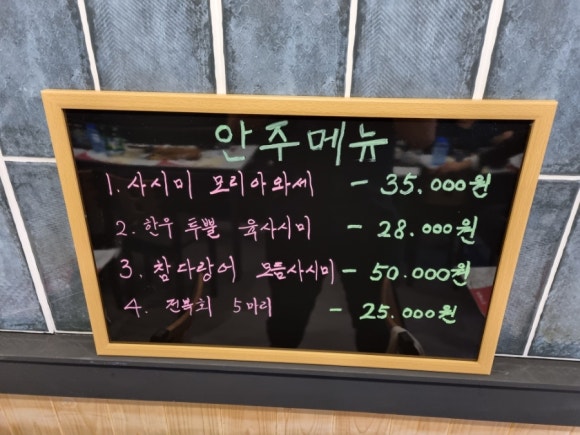 안주메뉴
1. 사시미 모리아와세 - 35.000원
2. 한우 투뿔 육사시미 - 28.000원
3. 참다랑어 모듬사시미 - 50.000원
4. 전복회 5마리 - 25.000원